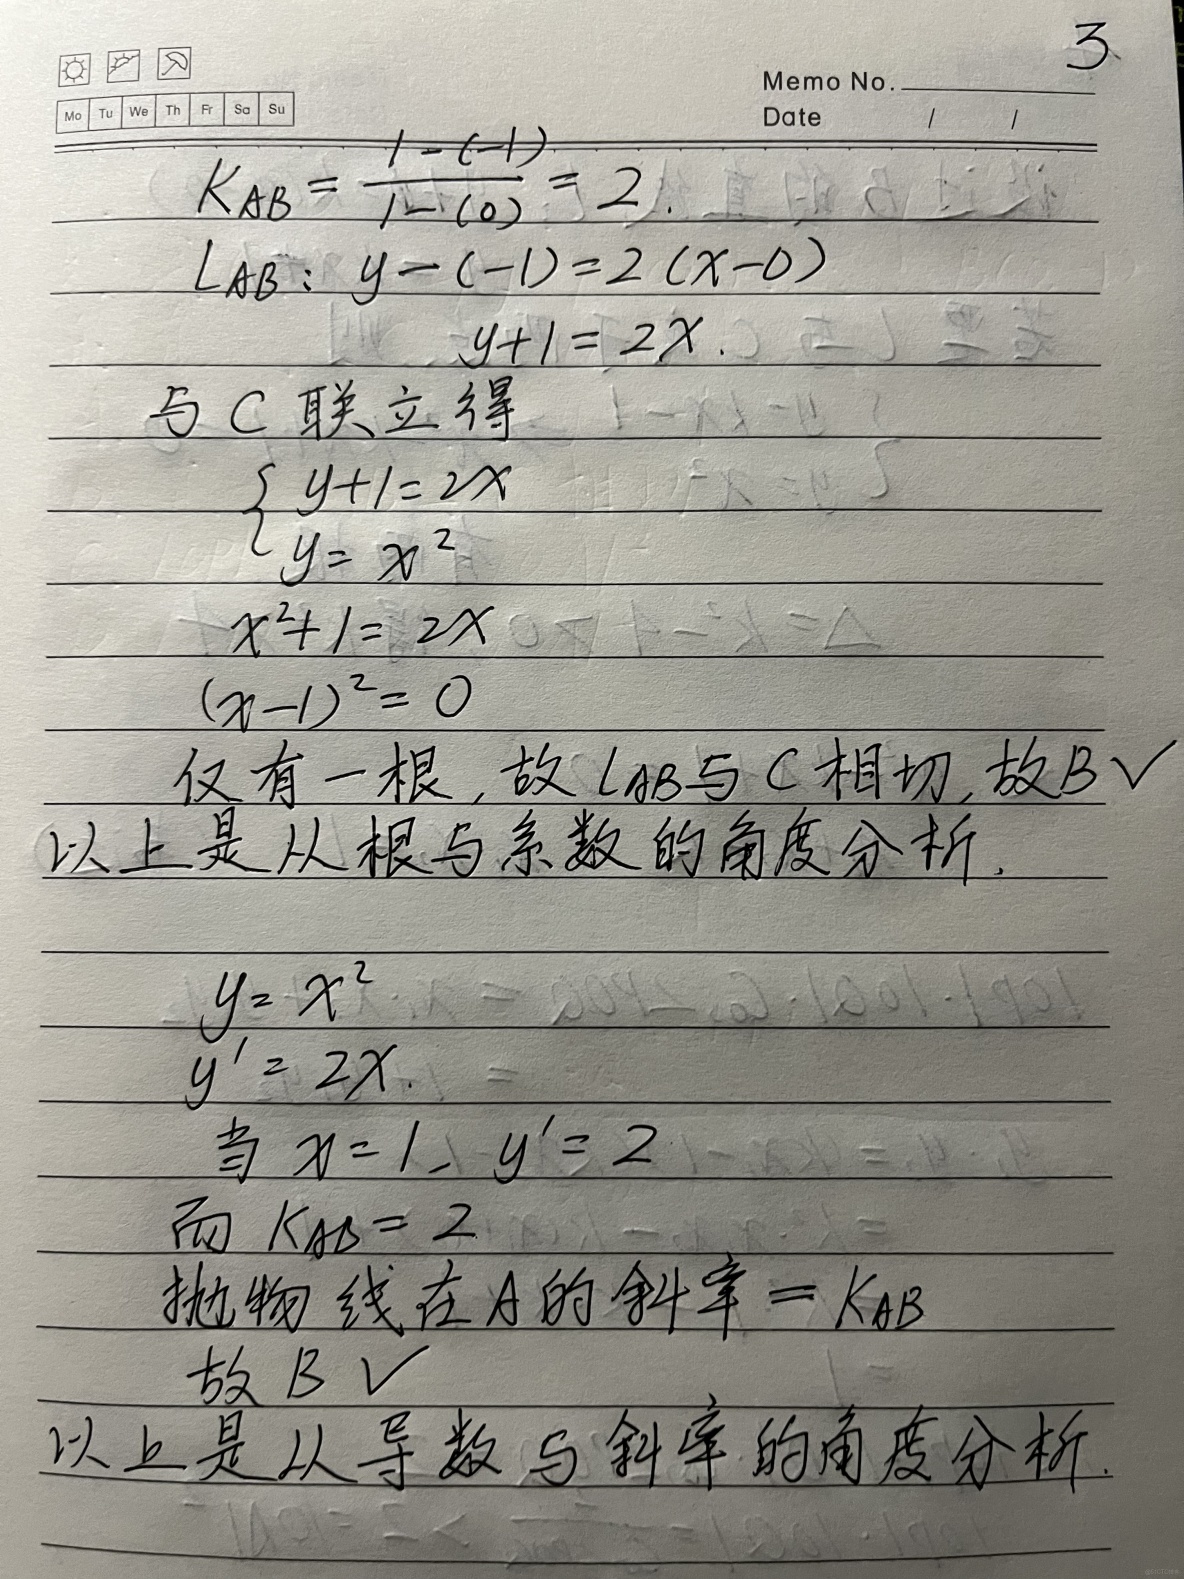 3
Memo No.
Mo Tu We Th Fr Sa Su
Date / /
K_AB = \frac{1-(-1)}{1-(0)} = 2.
L_AB: y-(-1)=2(x-0)
y+1=2x.
与C联立得
{ y+1=2x
{ y=x²
x²+1=2x
(x-1)²=0
仅有一根,故L_AB与C相切,故B✓
以上是从根与系数的角度分析.
y=x²
y'=2x.
当x=1, y'=2
而K_AB=2
抛物线在A的斜率=K_AB
故B✓
以上是从导数与斜率的角度分析.